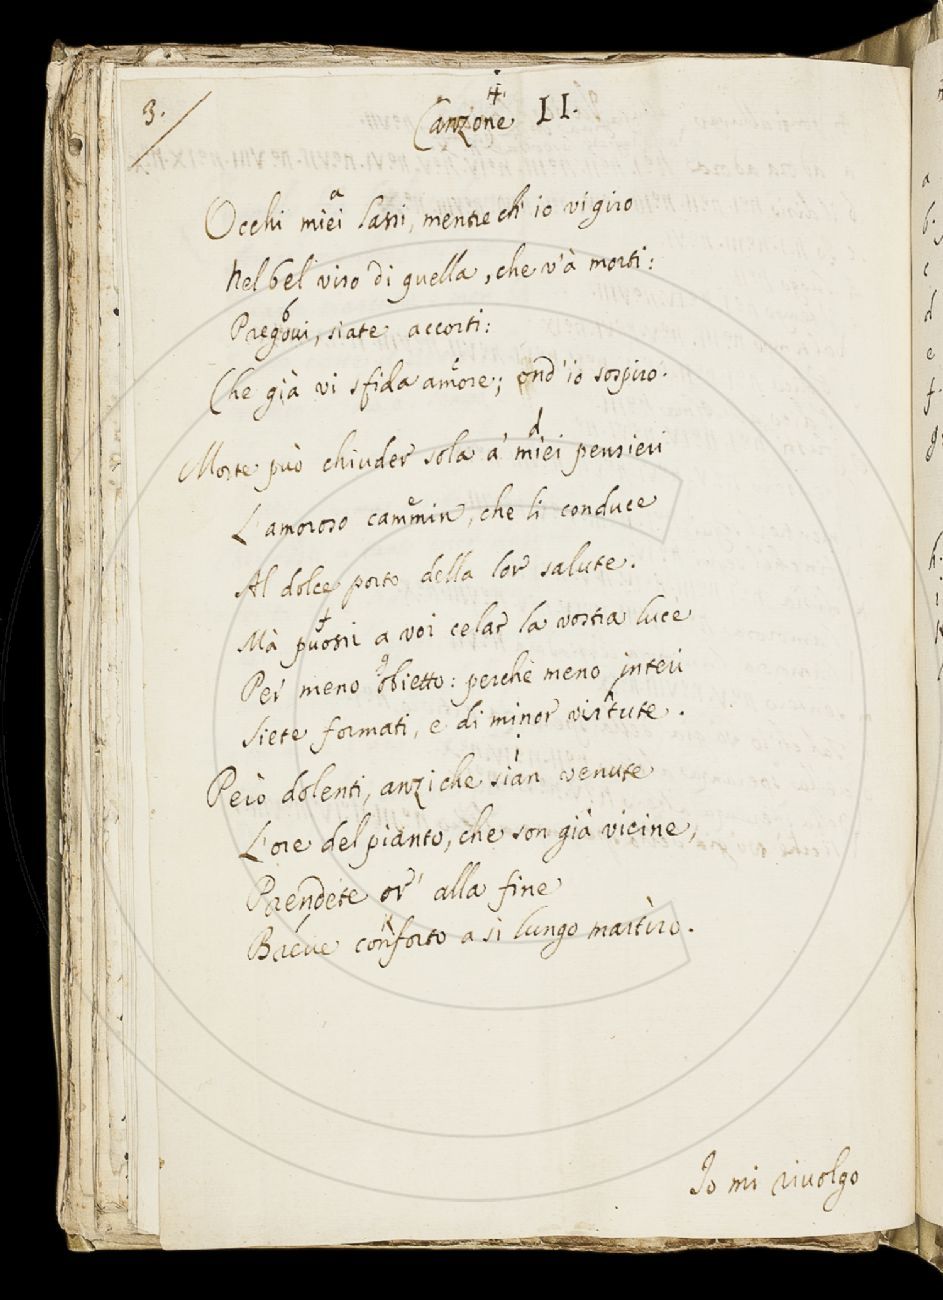 3.
Canzone II.
Occhi miei lassi, mentre ch' io vi giro
Nel bel viso di quella, che v'à morti:
Pregovi, siate accorti:
Che già vi sfida amore; ond' io sospiro.
Morte può chiuder sola a' miei pensieri
L'amoroso cammin, che li conduce
Al dolce porto della lor salute.
Mà puossi a voi celar la vostra luce
Per meno obietto: perchè meno interi
Siete formati, e di minor virtute.
Però dolenti, anzi che siàn venute
L'ore del pianto, che son già vicine,
Prendete or' alla fine
Breve conforto a sì lungo martìro.
Io mi rivolgo